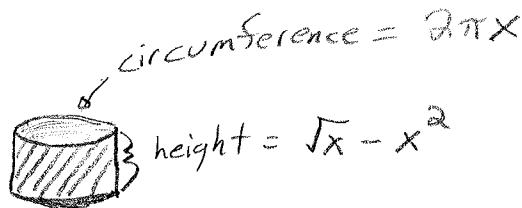 circumference = 2πx
height = √x - x²